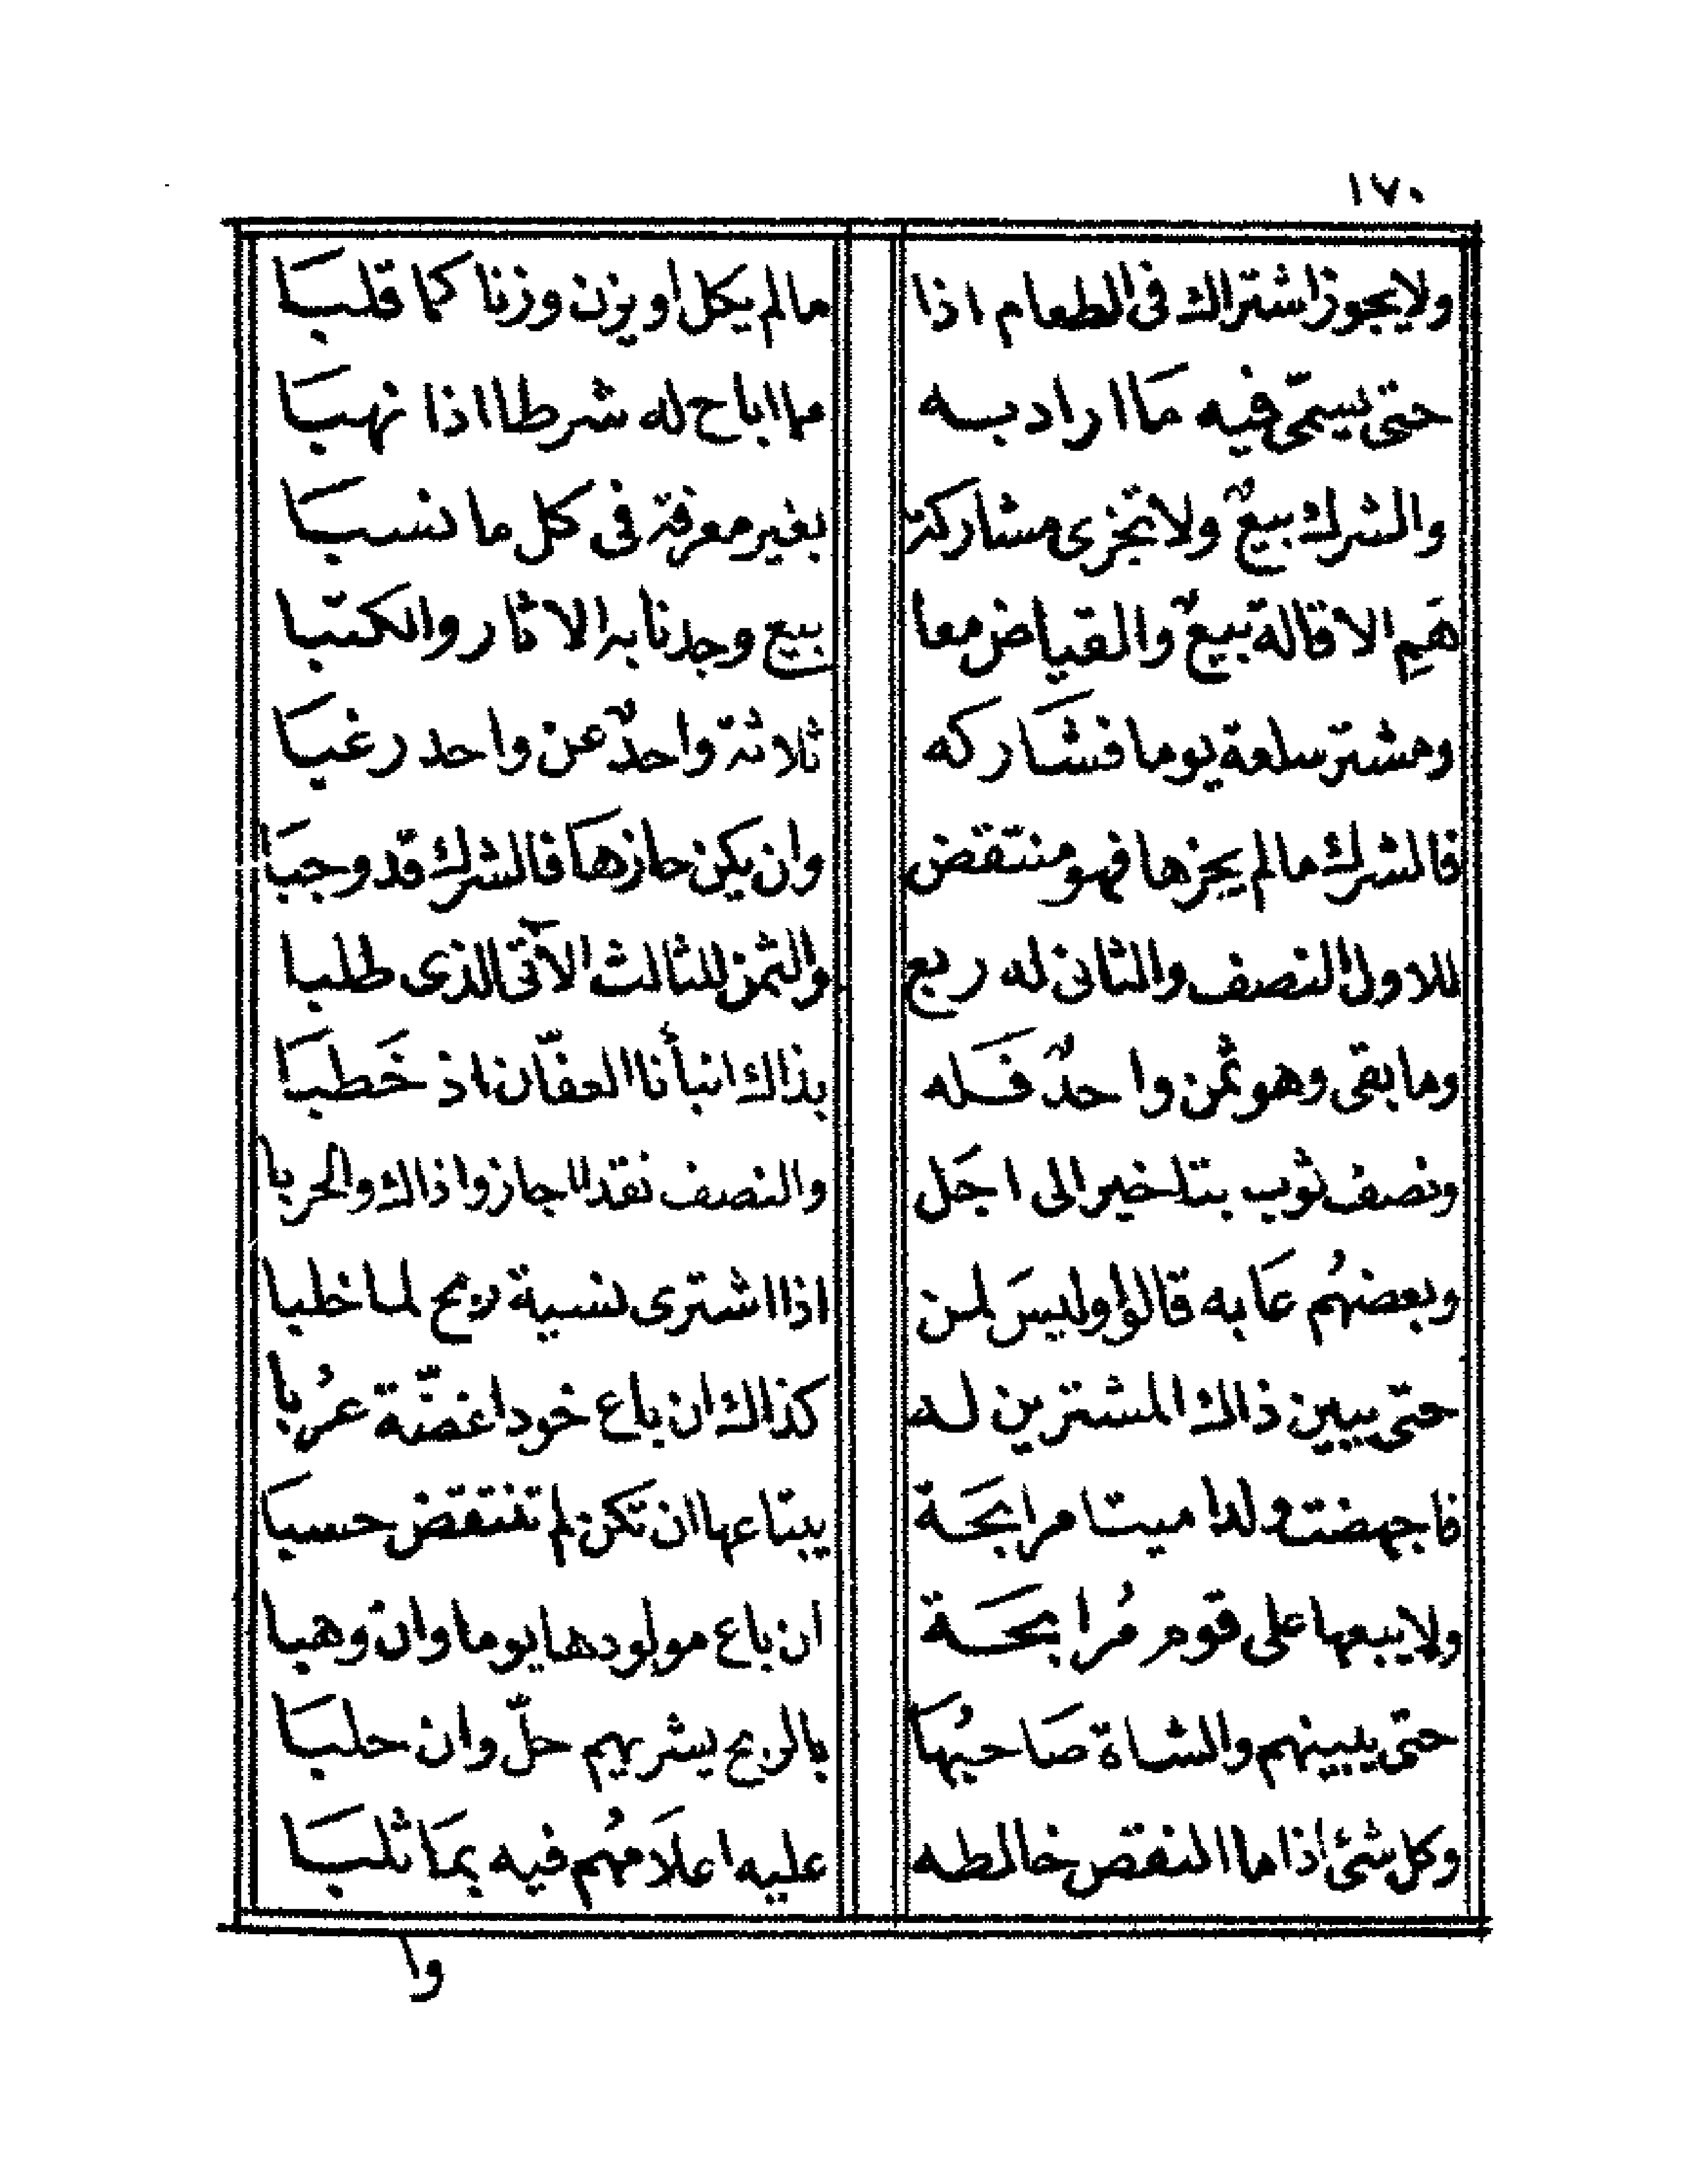 ١٧٠
ولا يجوز اشتراك فى الطعام اذا مالم يكل او يزن وزنا كما قلبَا
حتى يسمّى فيه مَا اراد به مما اباح له شرطا اذا نهبَا
والشرك بيعٌ ولا تجزى مشاركة بغير معرفة فى كل ما نسبَا
الاقالة بيعٌ والقياض معا بيع وجدنا به الاثار والكتبا
ومشتر سلعة يوما فشَاركه ثلاثة واحدٌ عن واحد رغبَا
فالشرك مالم يحزها فهو منتقض وان يكن حازهَا فالشرك قد وجبَا
للاول النصف والثانى له ربع والثمن للثالث الآتى الذى طلبا
وما بقى وهو ثمن واحدٌ فَله بذاك انبأنا العفّان اذ خَطبَا
ونصف ثوب بتاخير الى اجَل والنصف نقدا اجازوا ذاك والحربا
وبعضهُم عَابه قالوا وليسَ لمن اذا اشترى نسية ربح لما خلبا
حتى يبين ذاك المشترين له كذاك ان باع خودا غضّة عرُبا
فاجهضت ولدا ميتا مرابحَة يبتاعها ان تكن لم تنتقض حسبا
ولا يبعها على قوم مُرابحَة ان باع مولودها يوما وان وهبا
حتى يبينهم والشاة صَاحبُهَا بالربح يشريهم حلّ وان حلبَا
وكل شئ اذا ما النقص خالطه عليه اعلَامُهم فيه بمَا ثلبَا
وا